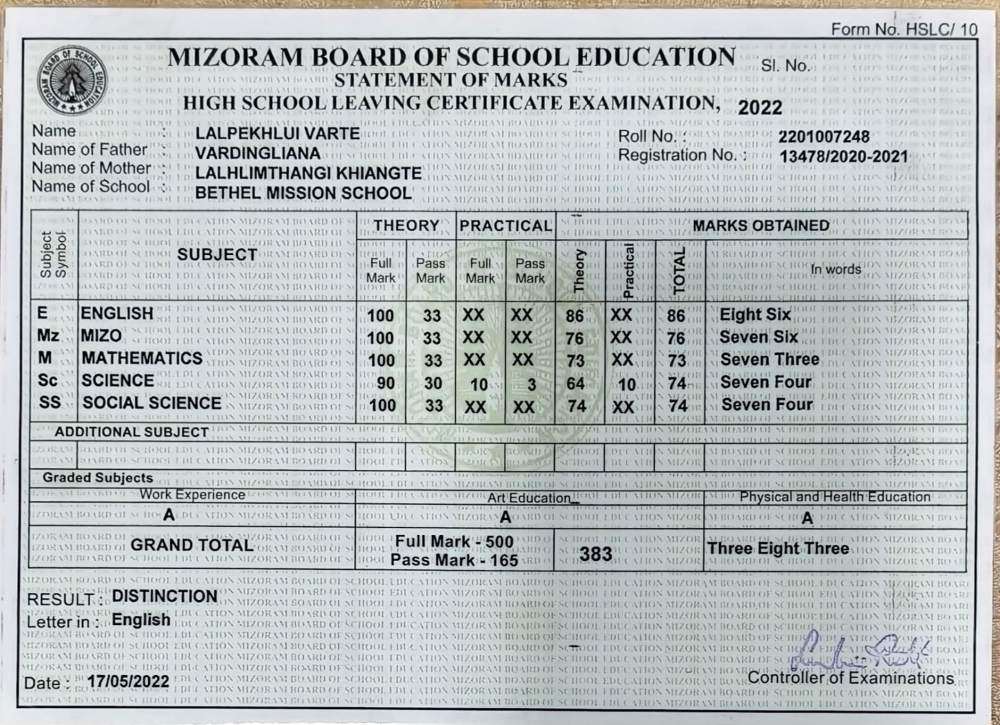 Form No. HSLC/ 10
MIZORAM BOARD OF SCHOOL EDUCATION
Sl. No.
STATEMENT OF MARKS
HIGH SCHOOL LEAVING CERTIFICATE EXAMINATION, 2022
Name : LALPEKHLUI VARTE
Roll No. : 2201007248
Name of Father : VARDINGLIANA
Registration No. : 13478/2020-2021
Name of Mother : LALHLIMTHANGI KHIANGTE
Name of School : BETHEL MISSION SCHOOL
Subject Symbol SUBJECT THEORY PRACTICAL MARKS OBTAINED
Full Mark Pass Mark Full Mark Pass Mark Theory Practical TOTAL In words
E ENGLISH 100 33 XX XX 86 XX 86 Eight Six
Mz MIZO 100 33 XX XX 76 XX 76 Seven Six
M MATHEMATICS 100 33 XX XX 73 XX 73 Seven Three
Sc SCIENCE 90 30 10 3 64 10 74 Seven Four
SS SOCIAL SCIENCE 100 33 XX XX 74 XX 74 Seven Four
ADDITIONAL SUBJECT
Graded Subjects
Work Experience Art Education Physical and Health Education
A A A
GRAND TOTAL Full Mark - 500 383 Three Eight Three
Pass Mark - 165
RESULT : DISTINCTION
Letter in : English
Date : 17/05/2022
Controller of Examinations